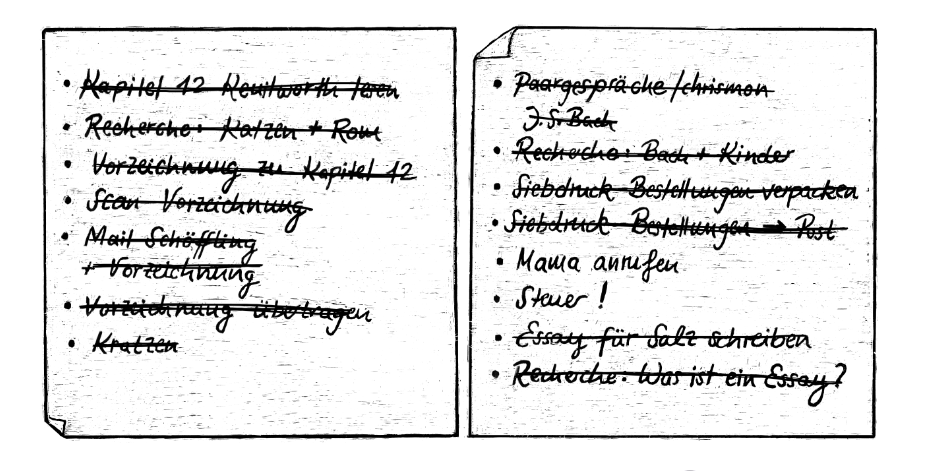 • Kapitel 12 Kenilworth lesen
• Recherche: Katzen + Rom
• Vorzeichnung zu Kapitel 12
• Scan Vorzeichnung
• Mail Schöffling
+ Vorzeichnung
• Vorzeichnung übertragen
• Kratzen
• Paargespräche/chrismon
J.S. Bach
• Recherche: Bach + Kinder
• Siebdruck-Bestellungen verpacken
• Siebdruck-Bestellungen → Post
• Mama anrufen
• Steuer!
• Essay für Salz schreiben
• Recherche: Was ist ein Essay?